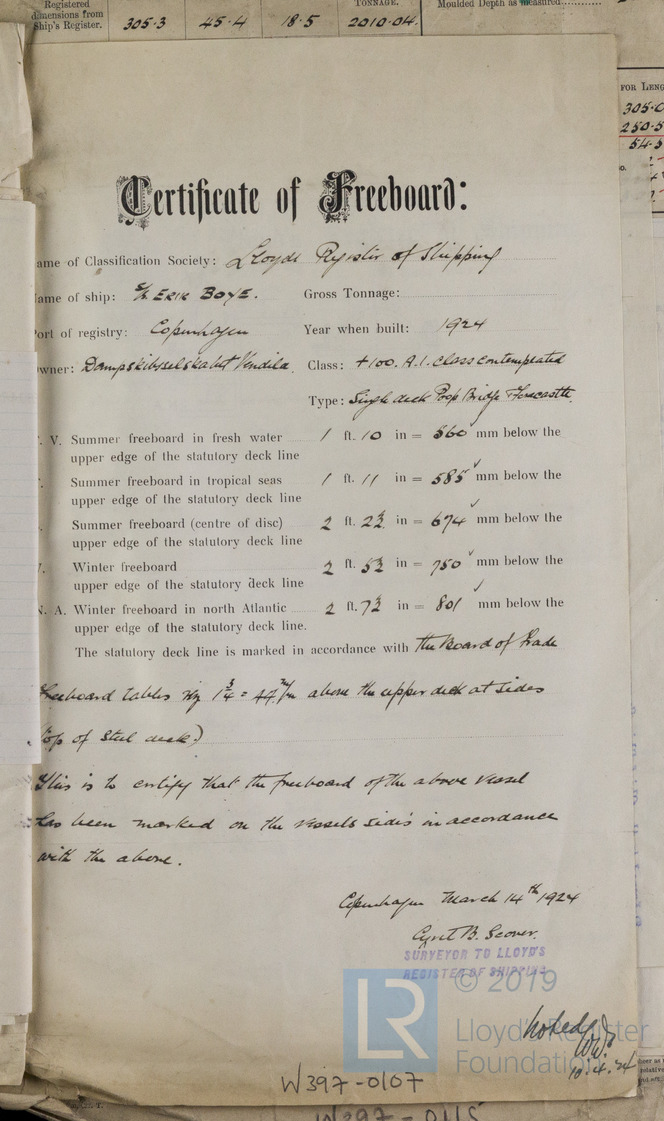 Registered
dimensions from
Ship's Register.
305·3 45·4 18·5 2010·04.
TONNAGE.
Moulded Depth as measured
FOR LENG
305·0
250·5
54·5
Certificate of Freeboard:
ame of Classification Society: Lloyds Register of Shipping
ame of ship: S/S ERIK BOYE. Gross Tonnage:
Port of registry: Copenhagen Year when built: 1924
wner: Dampskibsselskabet Vendila. Class: +100. A.1. class contemplated
Type: Single deck Poop Bridge Forecastle.
V. Summer freeboard in fresh water 1 ft. 10 in = 560 mm below the
upper edge of the statutory deck line
Summer freeboard in tropical seas 1 ft. 11 in = 585 mm below the
upper edge of the statutory deck line
Summer freeboard (centre of disc) 2 ft. 2½ in = 674 mm below the
upper edge of the statutory deck line
Winter freeboard 2 ft. 5½ in = 750 mm below the
upper edge of the statutory deck line
N. A. Winter freeboard in north Atlantic 2 ft. 7½ in = 801 mm below the
upper edge of the statutory deck line.
The statutory deck line is marked in accordance with the Board of Trade
Freeboard tables 1¾ = 44 m/m above the upper deck at sides
(top of steel deck)
This is to certify that the freeboard of the above vessel
has been marked on the vessels sides in accordance
with the above.
Copenhagen March 14th 1924
SURVEYOR TO LLOYD'S
REGISTER OF SHIPPING
© 2019
LR
Lloyd's Register
Foundation
Noted
WW
10.4.24
W397-0107
W397-0115